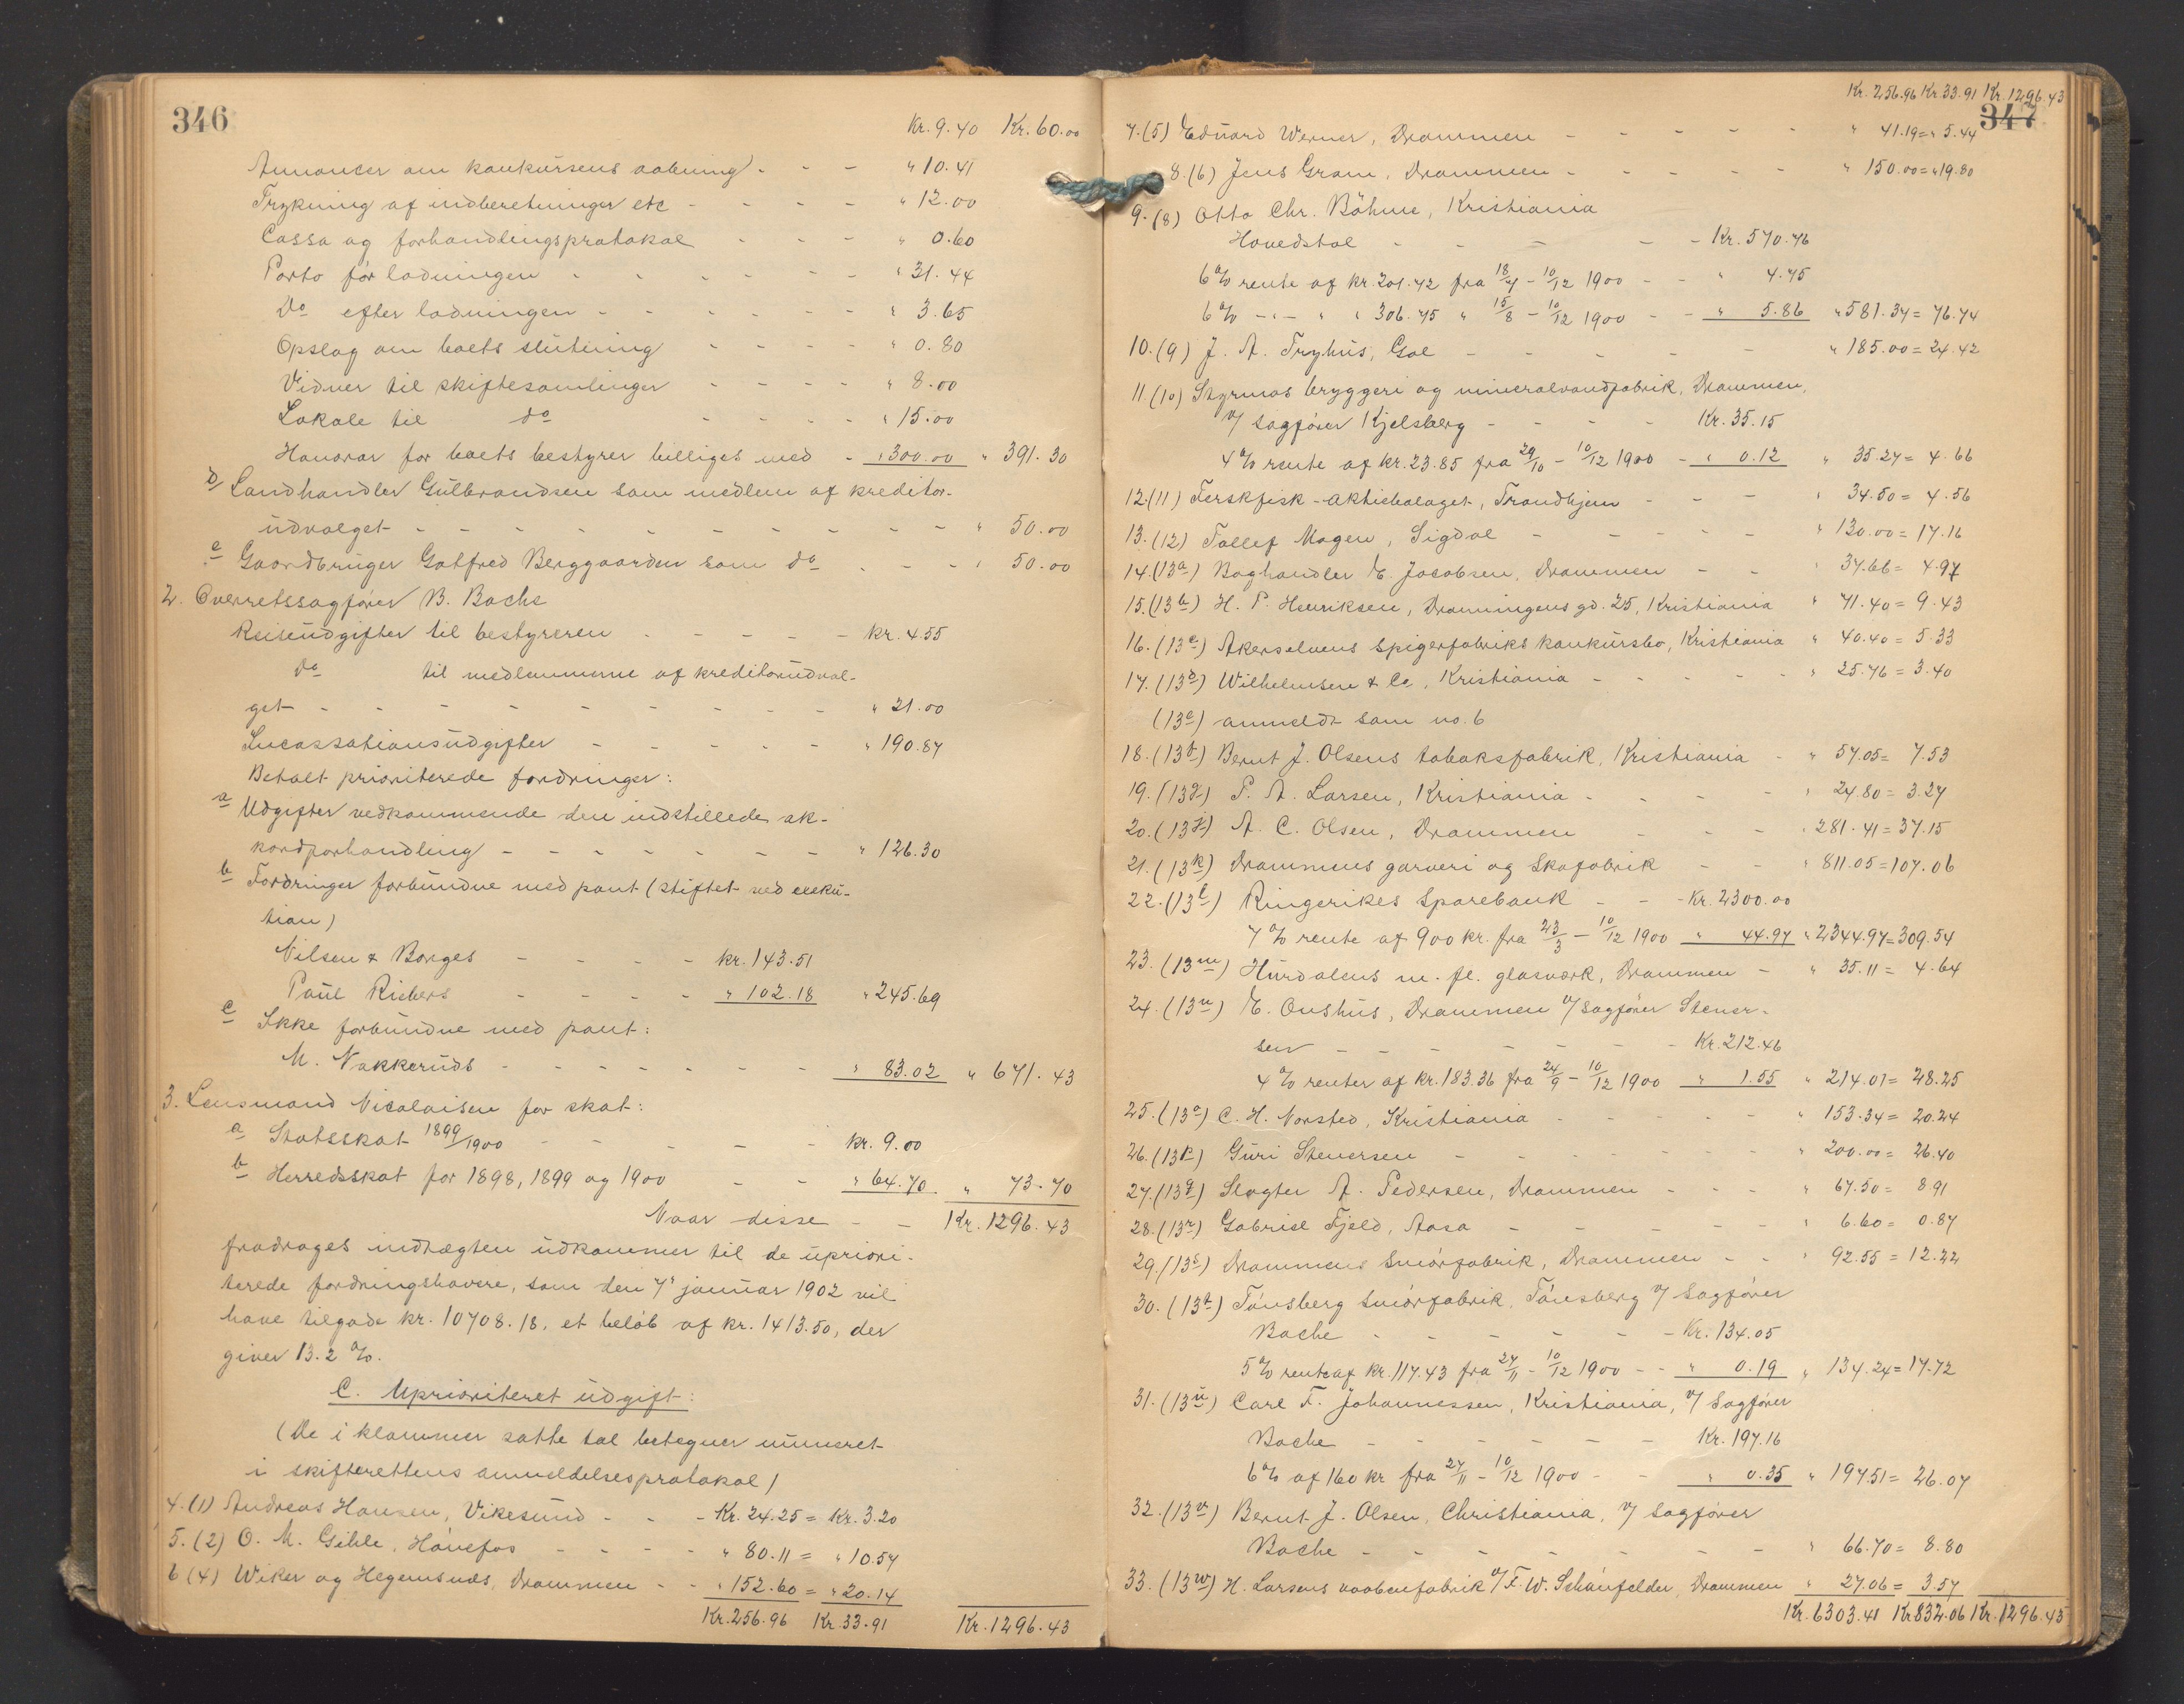 346
Kr. 9.40 Kr. 60.00
Annoncer om konkursens aabning - - - " 10.41
Trykning af indberetninger etc - - - - " 12.00
Cassa og forhandlingsprotokol - - - " 0.60
Porto før ladningen - - - - - - " 31.44
Do efter ladningen - - - - - - " 3.65
Opslag om boets slutning - - - - " 0.80
Vidner til skiftesamlinger - - - - " 8.00
Lokale til do - - - - " 15.00
Honorar for boets bestyrer billiges med - " 300.00 " 391.30
d Landhandler Gulbrandsen som medlem af kreditor-
udvalget - - - - - - - - - - " 50.00
e Gaardbruger Gotfred Berggaarden som do - - - " 50.00
2. Overretssagfører B. Bachs
Reiseudgifter til bestyreren - - - - - kr. 4.55
do til medlemmerne af kreditorudval-
get - - - - - - - - - " 21.00
Incassationsudgifter - - - - - " 190.87
Betalt prioriterede fordringer:
a Udgifter vedkommende den indstillede ak-
kordforhandling - - - - - - - " 126.30
b Fordringer forbundne med pant (stiftet ved exeku-
tion)
Nilsen & Borges - - - - kr. 143.51
Paul Richers - - - - " 102.18 " 245.69
c Ikke forbundne med pant:
M. Nakkeruds - - - - - - - " 83.02 " 671.43
3. Lensmand Nicolaisen for skat:
a Statsskat 1899/1900 - - - - - kr. 9.00
b Herredsskat for 1898, 1899 og 1900 - - " 64.70 " 73.70
Naar disse - - Kr. 1296.43
fradrages indtægten udkommer til de upriori-
terede fordringshavere, som den 7' januar 1902 vil
have tilgode kr. 10708.18, et beløb af kr. 1413.50, der
giver 13.2 %.
C. Uprioriteret udgift:
(De i klammer satte tal betegner numeret
i skifterettens anmeldelsesprotokol)
4. (1) Andreas Hansen, Vikesund - - - Kr. 24.25 = Kr. 3.20
5. (2) O. M. Gihle, Hønefos - - - - " 80.11 = " 10.57
6 (4) Wiker og Hegernsnæs, Drammen - - " 152.60 = " 20.14
Kr. 256.96 Kr. 33.91 Kr. 1296.43
Kr. 256.96 Kr. 33.91 Kr. 1296.43
347
7. (5) Eduard Werner, Drammen - - - - - " 41.19 = " 5.44
8. (6) Jens Gram, Drammen - - - - - " 150.00 = " 19.80
9. (8) Otto Chr. Böhme, Kristiania
Hovedstol - - - - - Kr. 570.76
6 % rente af kr. 201.42 fra 18/7 - 10/12 1900 - - " 4.75
6 % -"- " " 306.75 " 15/8 - 10/12 1900 - - " 5.86 " 581.37 = 76.74
10. (9) J. A. Tryhus, Gol - - - - - " 185.00 = 24.42
11. (10) Styrmos bryggeri og mineralvandfabrik, Drammen,
v/ sagfører Kjelsberg - - - - Kr. 35.15
4 % rente af kr. 23.85 fra 29/10 - 10/12 1900 - " 0.12 " 35.27 = 4.66
12. (11) Ferskfisk-aktiebolaget, Trondhjem - - - " 34.50 = 4.56
13. (12) Tollef Mogen, Sigdal - - - - - " 130.00 = 17.16
14. (13a) Boghandler E. Jacobsen, Drammen - - " 37.66 = 4.97
15. (13b) H. P. Henriksen, Dronningens gd. 25, Kristiania " 71.40 = 9.43
16. (13c) Akerselvens Spigerfabriks konkursbo, Kristiania " 40.40 = 5.33
17. (13d) Wilhelmsen & Co, Kristiania - - - - - " 25.76 = 3.40
(13e) anmeldt som no. 6
18. (13f) Bernt J. Olsens tobaksfabrik, Kristiania - " 57.05 = 7.53
19. (13g) P. A. Larsen, Kristiania - - - - " 24.80 = 3.27
20. (13j) A. C. Olsen, Drammen - - - " 281.41 = 37.15
21. (13k) Drammens garveri og Skofabrik - - " 811.05 = 107.06
22. (13l) Ringerikes Sparebank - - - Kr. 2300.00
7 % rente af 900 kr. fra 23/3 - 10/12 1900 " 44.97 " 2344.97 = 309.54
23. (13m) Hurdalens m. fl. glasværk, Drammen - " 35.11 = 4.64
24. (13n) E. Onshus, Drammen v/ sagfører Stener-
sen - - - - - - - Kr. 212.46
4 % renter af kr. 183.36 fra 24/9 - 10/12 1900 " 1.55 " 214.01 = 28.25
25. (13o) C. H. Norsted, Kristiania - - - - - " 153.34 = 20.24
26. (13p) Guri Stenersen - - - - - - - " 200.00 = 26.40
27. (13q) Slagter A. Pedersen, Drammen - - - " 67.50 = 8.91
28. (13r) Gabriel Fjeld, Aasa - - - - - - " 6.60 = 0.87
29. (13s) Drammens Smørfabrik, Drammen - - " 92.55 = 12.22
30. (13t) Tønsberg Smørfabrik, Tønsberg v/ sagfører
Bache - - - - - - Kr. 134.05
5 % rente af kr. 117.43 fra 27/11 - 10/12 1900 - - " 0.19 " 134.24 = 17.72
31. (13u) Carl F. Johannessen, Kristiania, v/ sagfører
Bache - - - - - - Kr. 197.16
6 % af 160 kr fra 27/11 - 10/12 1900 - - " 0.35 " 197.51 = 26.07
32. (13v) Bernt J. Olsen, Christiania, v/ sagfører
Bache - - - - - - - - " 66.70 = 8.80
33. (13w) H. Larsens vaabenfabrik v/ F. W. Schønfelder, Drammen " 27.06 = 3.57
Kr. 6303.41 Kr 832.06 Kr. 1296.43